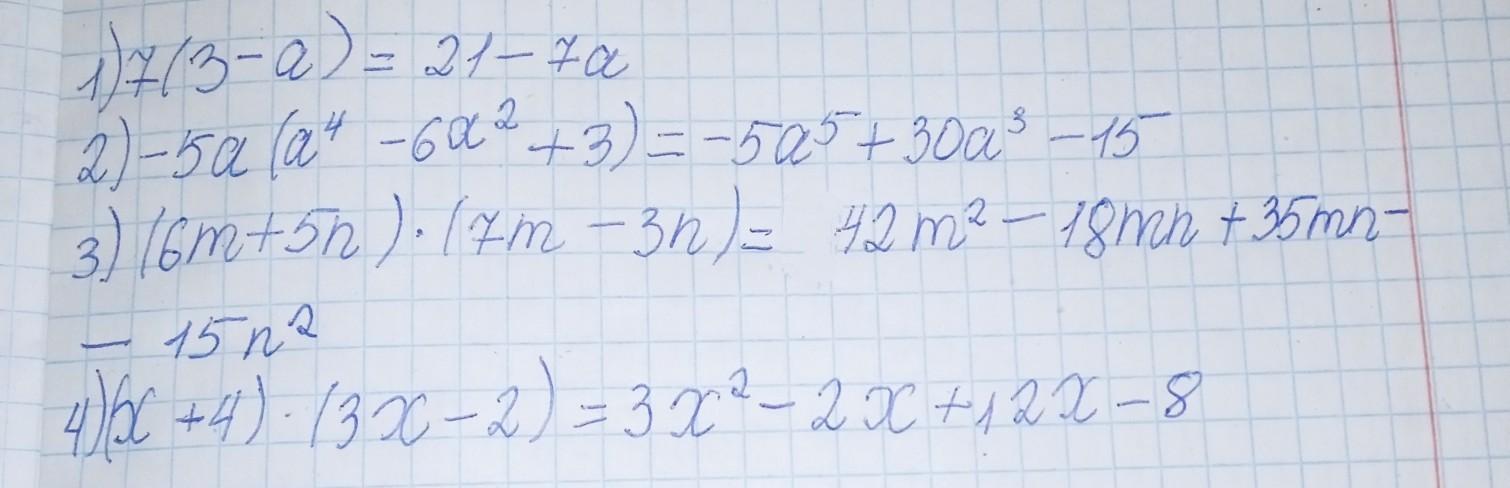 1) 7(3-a) = 21-7a
2) -5a(a⁴ -6a² +3) = -5a⁵ + 30a³ -15
3) (6m+5n)·(7m -3n) = 42m² - 18mn + 35mn-
- 15n²
4) (x +4)·(3x-2) = 3x² - 2x + 12x - 8